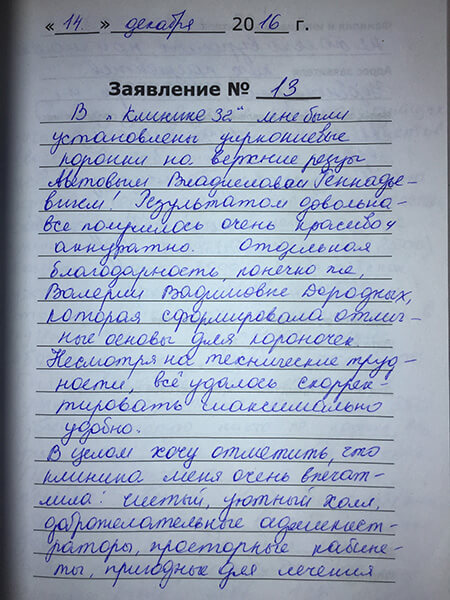 « 14. » декабря 2016 г.
Заявление № 13
В „Клинике 32" мне были
установлены циркониевые
коронки на верхние резцы
Мытовым Владиславом Геннадье-
вичем! Результатом довольна-
все получилось очень красиво и
аккуратно. Отдельная
благодарность, конечно же,
Валерии Вадимовне Дородных,
которая сформировала отлич-
ные основы для короночек.
Несмотря на технические труд-
ности, всё удалось скоррек-
тировать максимально
удобно.
В целом хочу отметить, что
клиника меня очень впечат-
лила: чистый, уютный холл,
доброжелательные админист-
раторы, просторные кабине-
ты, пригодные для лечения